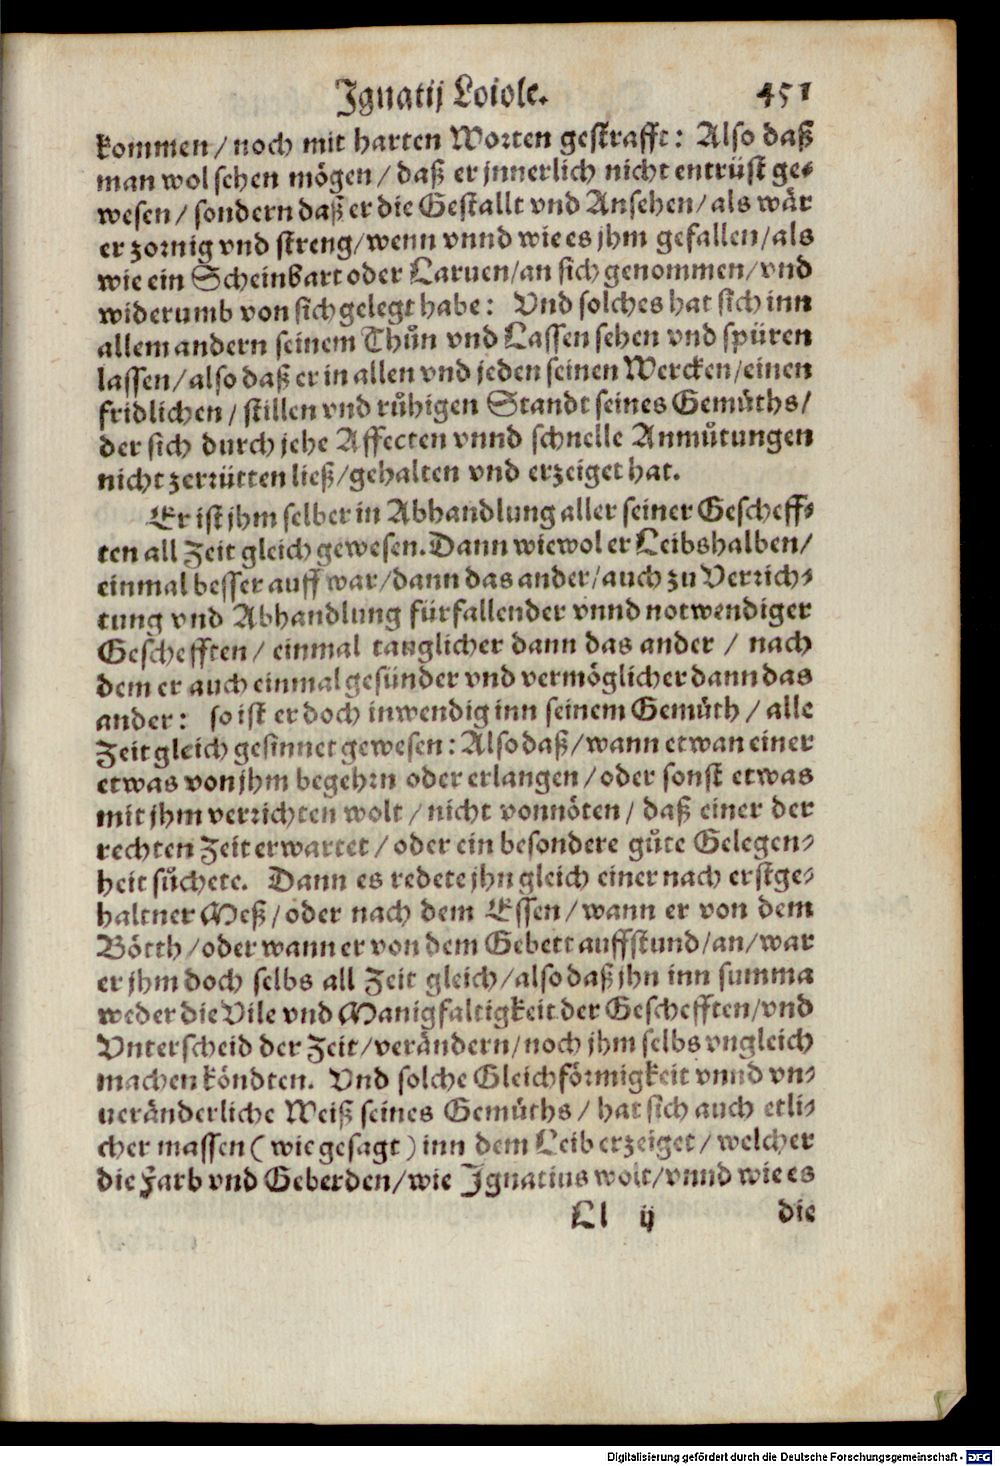 Ignatij Loiole. 451
kommen/noch mit harten Worten gestrafft: Also daß
man wol sehen mögen/daß er jnnerlich nicht entrüst ge-
wesen/sondern daß er die Gestallt vnd Ansehen/als wär
er zornig vnd streng/wenn vnnd wie es jhm gefallen/als
wie ein Scheinbart oder Laruen/an sich genommen/vnd
widerumb von sich gelegt habe: Vnd solches hat sich inn
allem andern seinem Thůn vnd Lassen sehen vnd spüren
lassen/also daß er in allen vnd jeden seinen Wercken/einen
fridlichen/stillen vnd růhigen Standt seines Gemüths/
der sich durch jehe Affecten vnnd schnelle Anmůtungen
nicht zerrütten ließ/gehalten vnd erzeiget hat.
Er ist jhm selber in Abhandlung aller seiner Gescheff-
ten all Zeit gleich gewesen. Dann wiewol er Leibshalben/
einmal besser auff war/dann das ander/auch zu Verrich-
tung vnd Abhandlung fürfallender vnnd notwendiger
Geschefften/einmal tauglicher dann das ander/nach
dem er auch einmal gesünder vnd vermöglicher dann das
ander: so ist er doch inwendig inn seinem Gemüth/alle
Zeit gleich gesinnet gewesen: Also daß/wann etwan einer
etwas von jhm begehrn oder erlangen/oder sonst etwas
mit jhm verrichten wolt/nicht vonnöten/daß einer der
rechten Zeit erwartet/oder ein besondere gůte Gelegen-
heit sůchete. Dann es redete jhn gleich einer nach erstge-
haltner Meß/oder nach dem Essen/wann er von dem
Bötth/oder wann er von dem Gebett auffstund/an/war
er jhm doch selbs all Zeit gleich/also daß jhn inn summa
weder die Vile vnd Manigfaltigkeit der Geschefften/vnd
Vnterscheid der Zeit/verändern/noch jhm selbs vngleich
machen köndten. Vnd solche Gleichförmigkeit vnnd vn-
ueränderliche Weiß seines Gemüths/hat sich auch etli-
cher massen (wie gesagt) inn dem Leib erzeiget/welcher
die Farb vnd Geberden/wie Ignatius wolt/vnnd wie es
Ll ij die
Digitalisierung gefördert durch die Deutsche Forschungsgemeinschaft - DFG